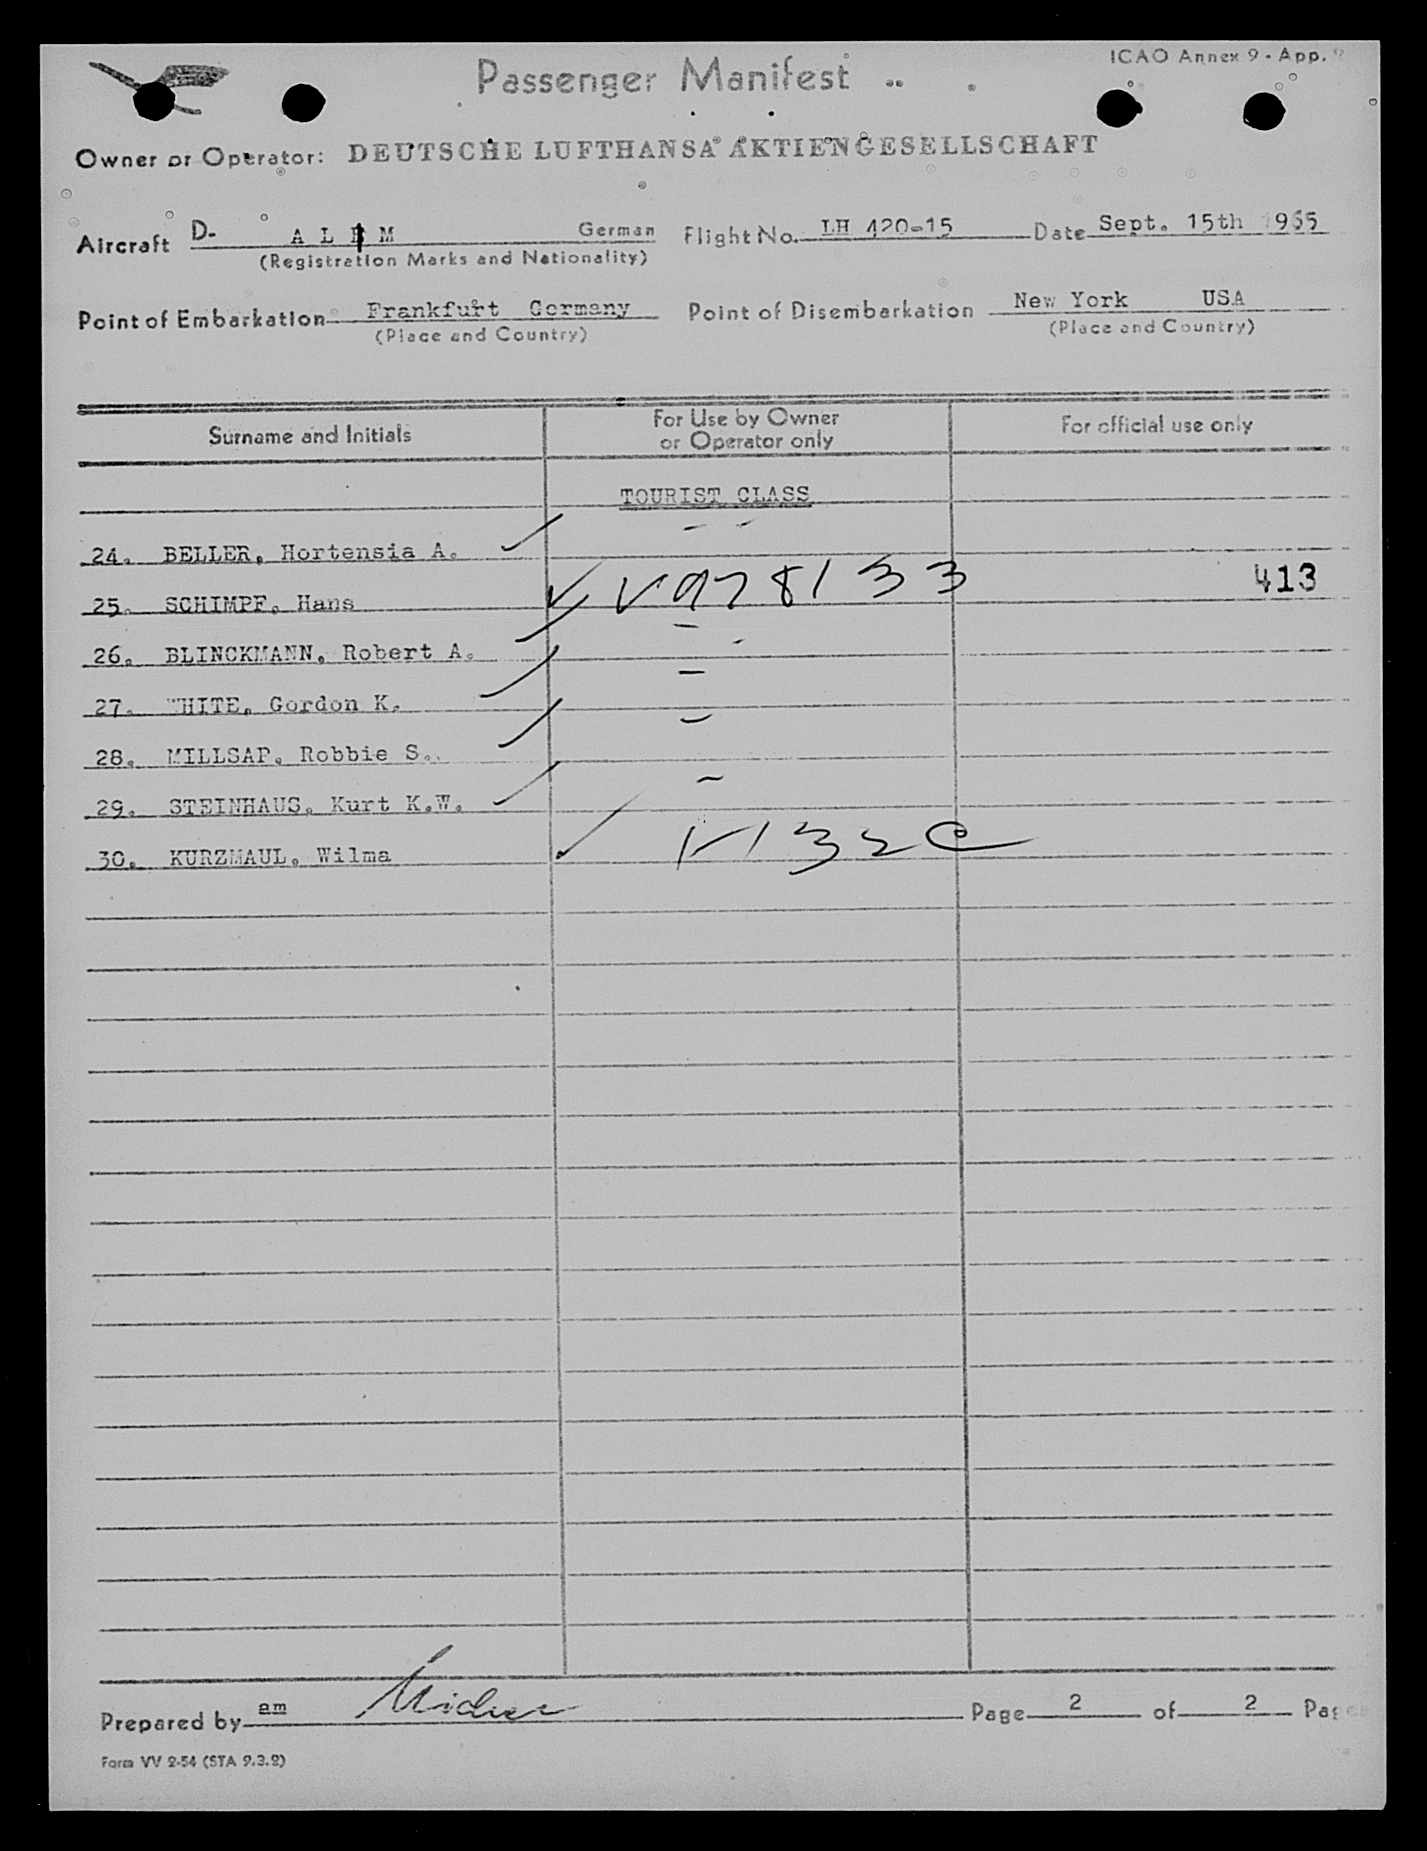 ICAO Annex 9 - App. 9
Passenger Manifest
Owner or Operator: DEUTSCHE LUFTHANSA AKTIENGESELLSCHAFT
Aircraft D- A L E M German Flight No. LH 420-15 Date Sept. 15th 1955
(Registration Marks and Nationality)
Point of Embarkation Frankfurt Germany Point of Disembarkation New York USA
(Place and Country) (Place and Country)
Surname and Initials
For Use by Owner
or Operator only
For official use only
TOURIST CLASS
24. BELLER, Hortensia A.
25. SCHIMPF, Hans V978133 413
26. BLINCKMANN, Robert A.
27. WHITE, Gordon K.
28. MILLSAP, Robbie S.
29. STEINHAUS, Kurt K.W.
30. KURZMAUL, Wilma
Prepared by am Page 2 of 2
Form VV 2-54 (STA 9.3.2)